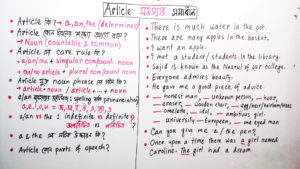 Article সমস্যার সমাধান
• Article কি? → a, an, the (determiner)
• Article কোন ধরনের শব্দের আগে বসে?
→ Noun (countable & common)
• Article এর core rule কি?
→ a/an/the + singular countable noun
→ the/no article + plural countable noun
• Article যুক্ত noun phrase এর গঠন কি?
→ article + noun / article + ... + noun
• a/an ব্যবহারের ভিত্তি: spelling নাকি pronunciation?
• a/an vs the : Indefinite vs definite?
• a ও the এর সঠিক উচ্চারণ কি?
• Article কোন parts of speech?
• There is much water in the pot.
• There are many apples in the basket.
• I want an apple.
• I met a student / students in the library.
• Sajid is known as the Nazrul of our college.
• Everyone admires beauty.
• He gave me a good piece of advice.
- honest man, - unknown person, - hour,
- eraser, - wooden chair, - egg/hair/horse/house
- university - European, - one eyed man
• Can you give me a / the pen?
• Once upon a time there was a girl named
Caroline. The girl had a dream.